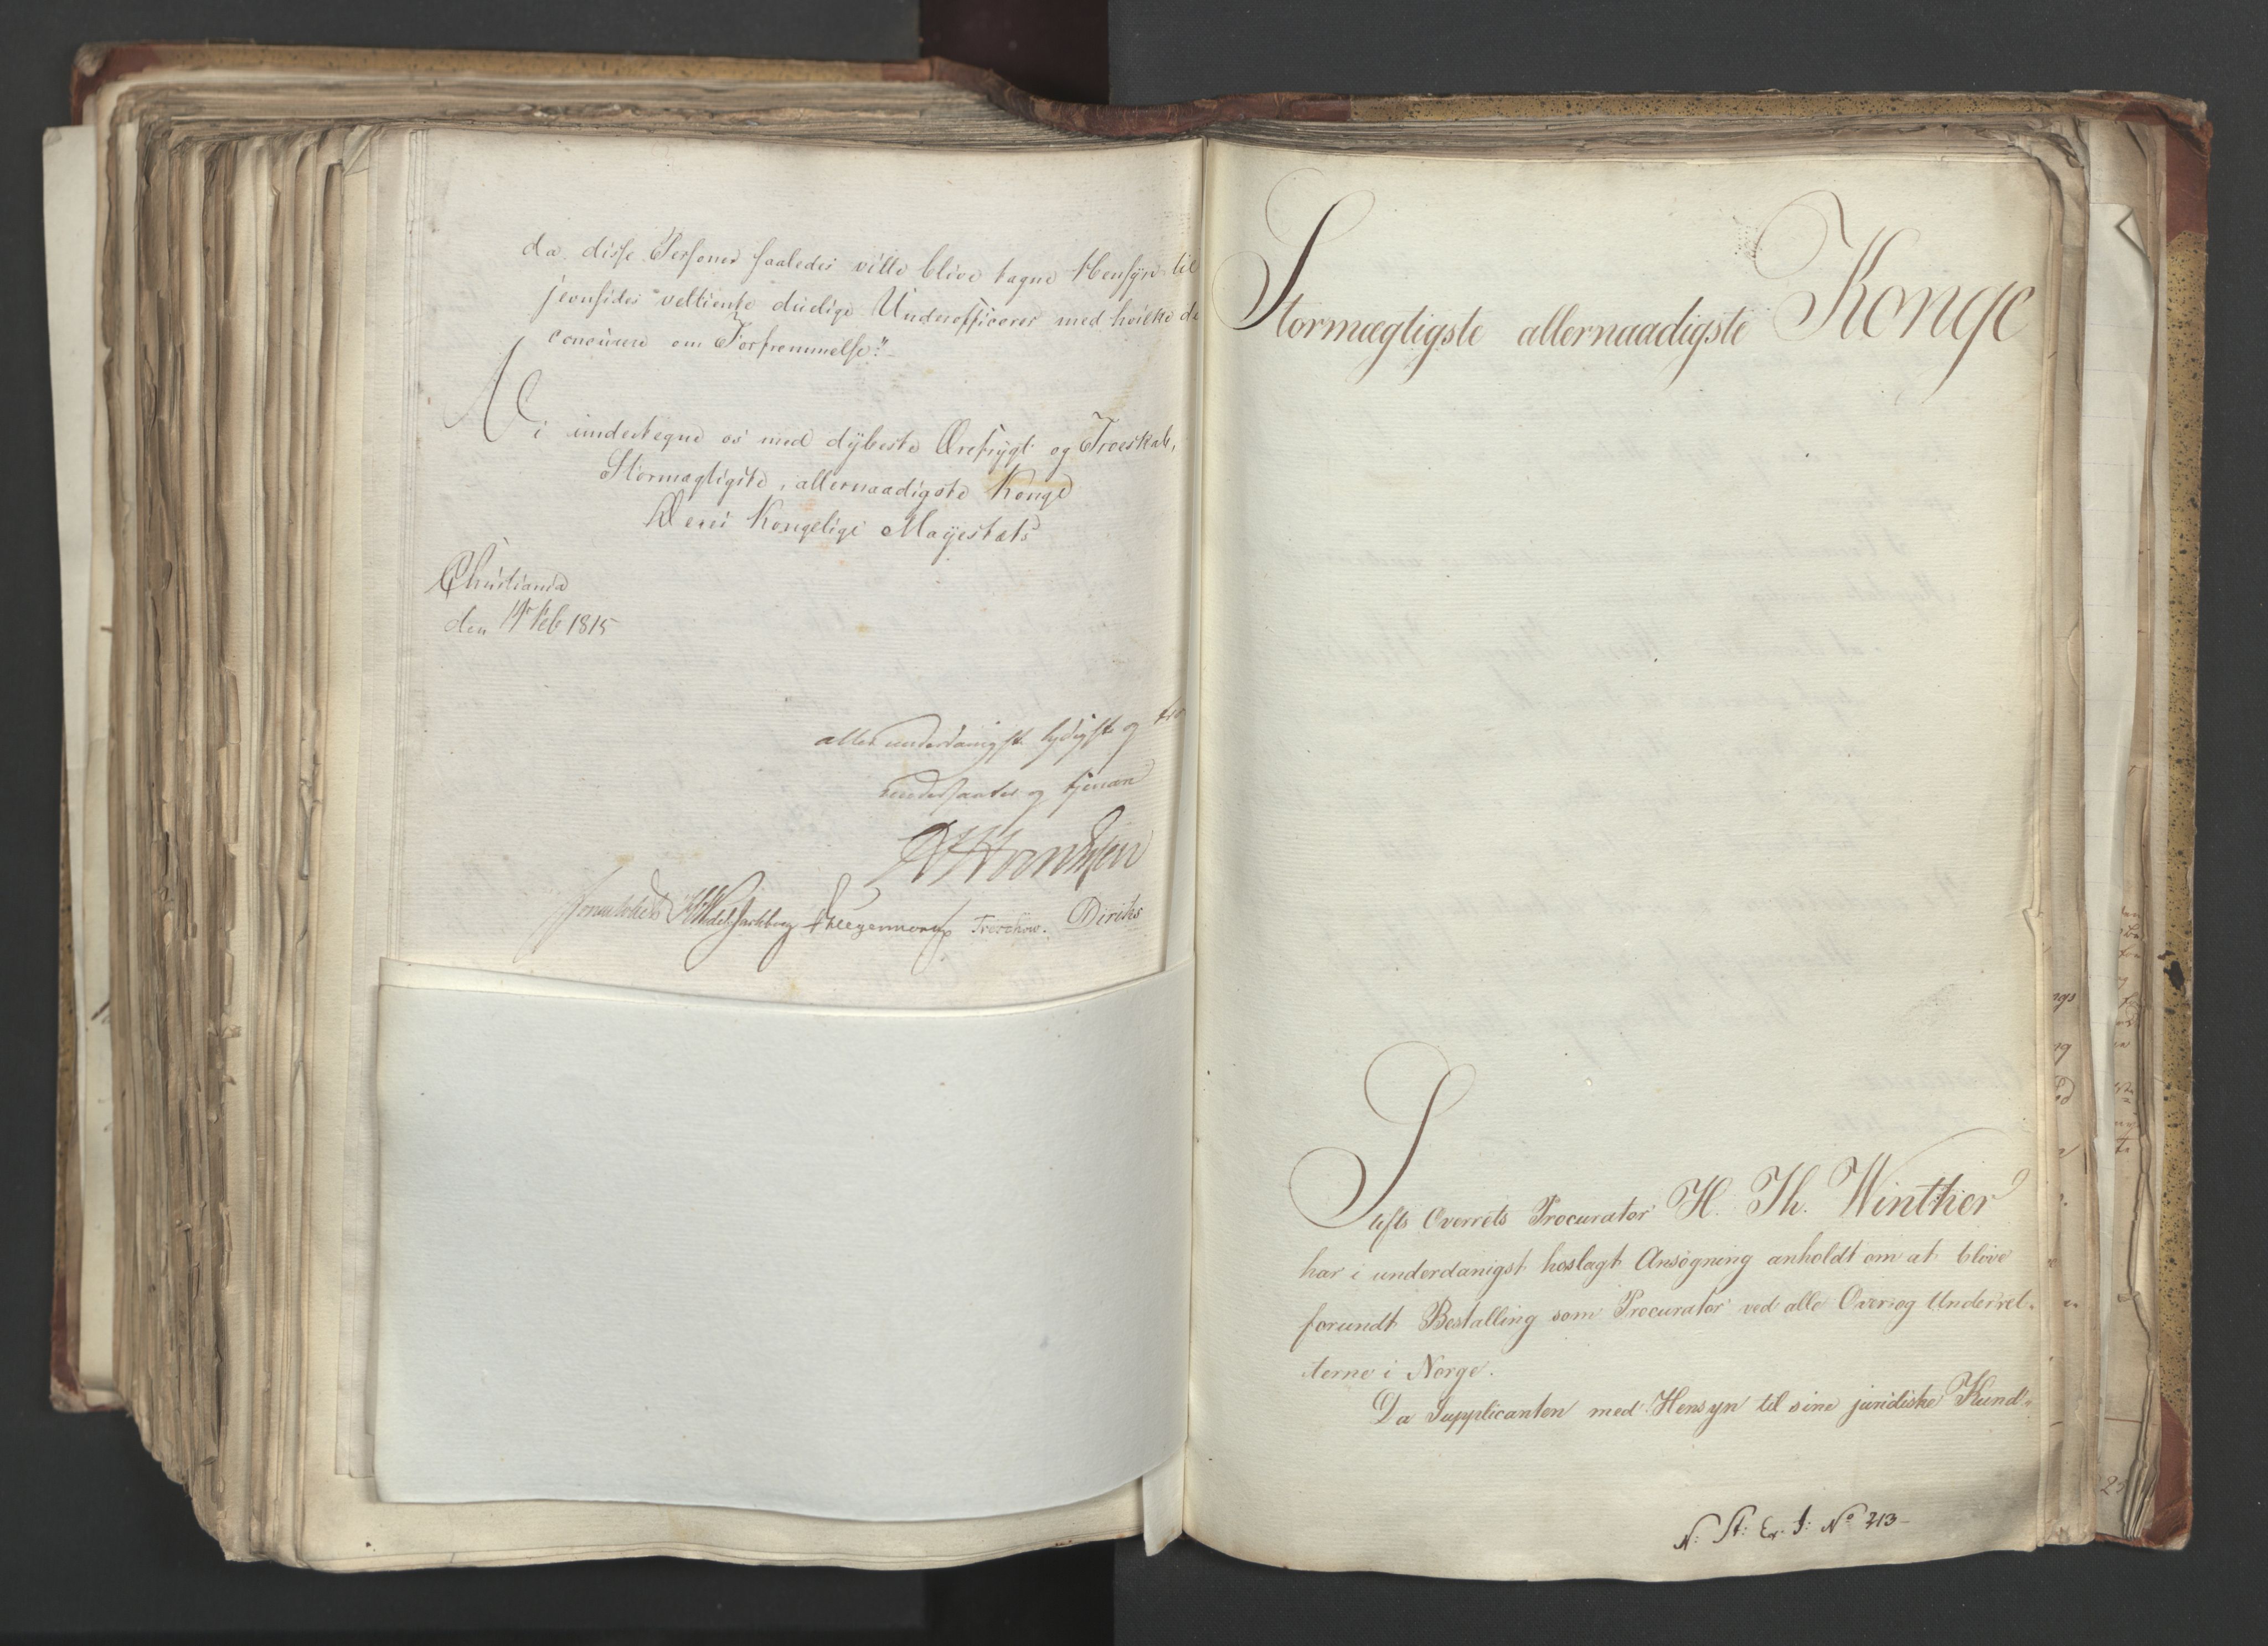 da disse Personer saaledes ville blive tagne Hensyn til
jevnsides veltiente duelige Underofficerer med hvilke de
concurere om Forfremmelse."
Vi undertegne os med dybeste Ærefrygt og Troeskab,
Stormægtigste, allernaadigste Konge
Deres Kongelige Mayestæts
Christiania
den 14 Feb 1815
allerunderdanigste lydigste og
undersaatter og tjenere
Sommerhielm Wedel Jarlsberg Hegermann Treschow. Diriks
Stormægtigste allernaadigste Konge
Stifts Overrets Procurator H. Th. Winther
har i underdanigst hoslagt Ansøgning anholdt om at blive
forundt Bestalling som Procurator ved alle Over og Underret-
terne i Norge.
Da Supplicanten med Hensyn til sine juridiske Kund-
N: St: Ex. J: No 313-